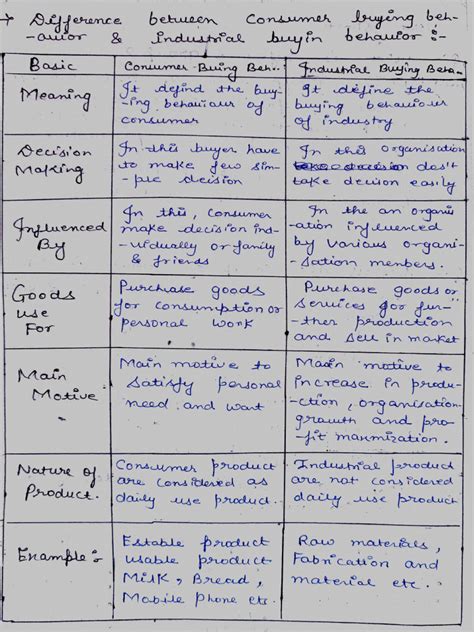 → Difference between Consumer buying beh-
-avior & industrial buyin behavior :-
Basic
Conumer Buing Beh..
Industrial Buying Beha..
Meaning
It defind the buy-
-ing behaviour of
consumer
It define the
buying behaviour
of industry
Decision
Making
In this buyer have
to make few sim-
-ple decision
In this organisation
dosn't
take decision easily
Influenced
By
In this, consumer
make decision ind-
-vidually or family
& friends
In the an organis
-ation influenced
by various organi-
-sation members.
Goods
use
For
Purchase goods
for consumption or
personal work
Purchase goods or
services for fur-
-ther production
and sell in market
Main
Motive
Main motive to
satisfy personal
need and want
Main motive to
increase in produ-
-ction, organisation
growth and pro-
-fit maximization.
Nature of
Product.
Consumer product
are considered as
daily use product.
Industrial product
are not considered
daily use product
Example:-
Estable product
usable product
Milk, Bread,
Mobile phone etc.
Raw materials,
Fabrication and
material etc.